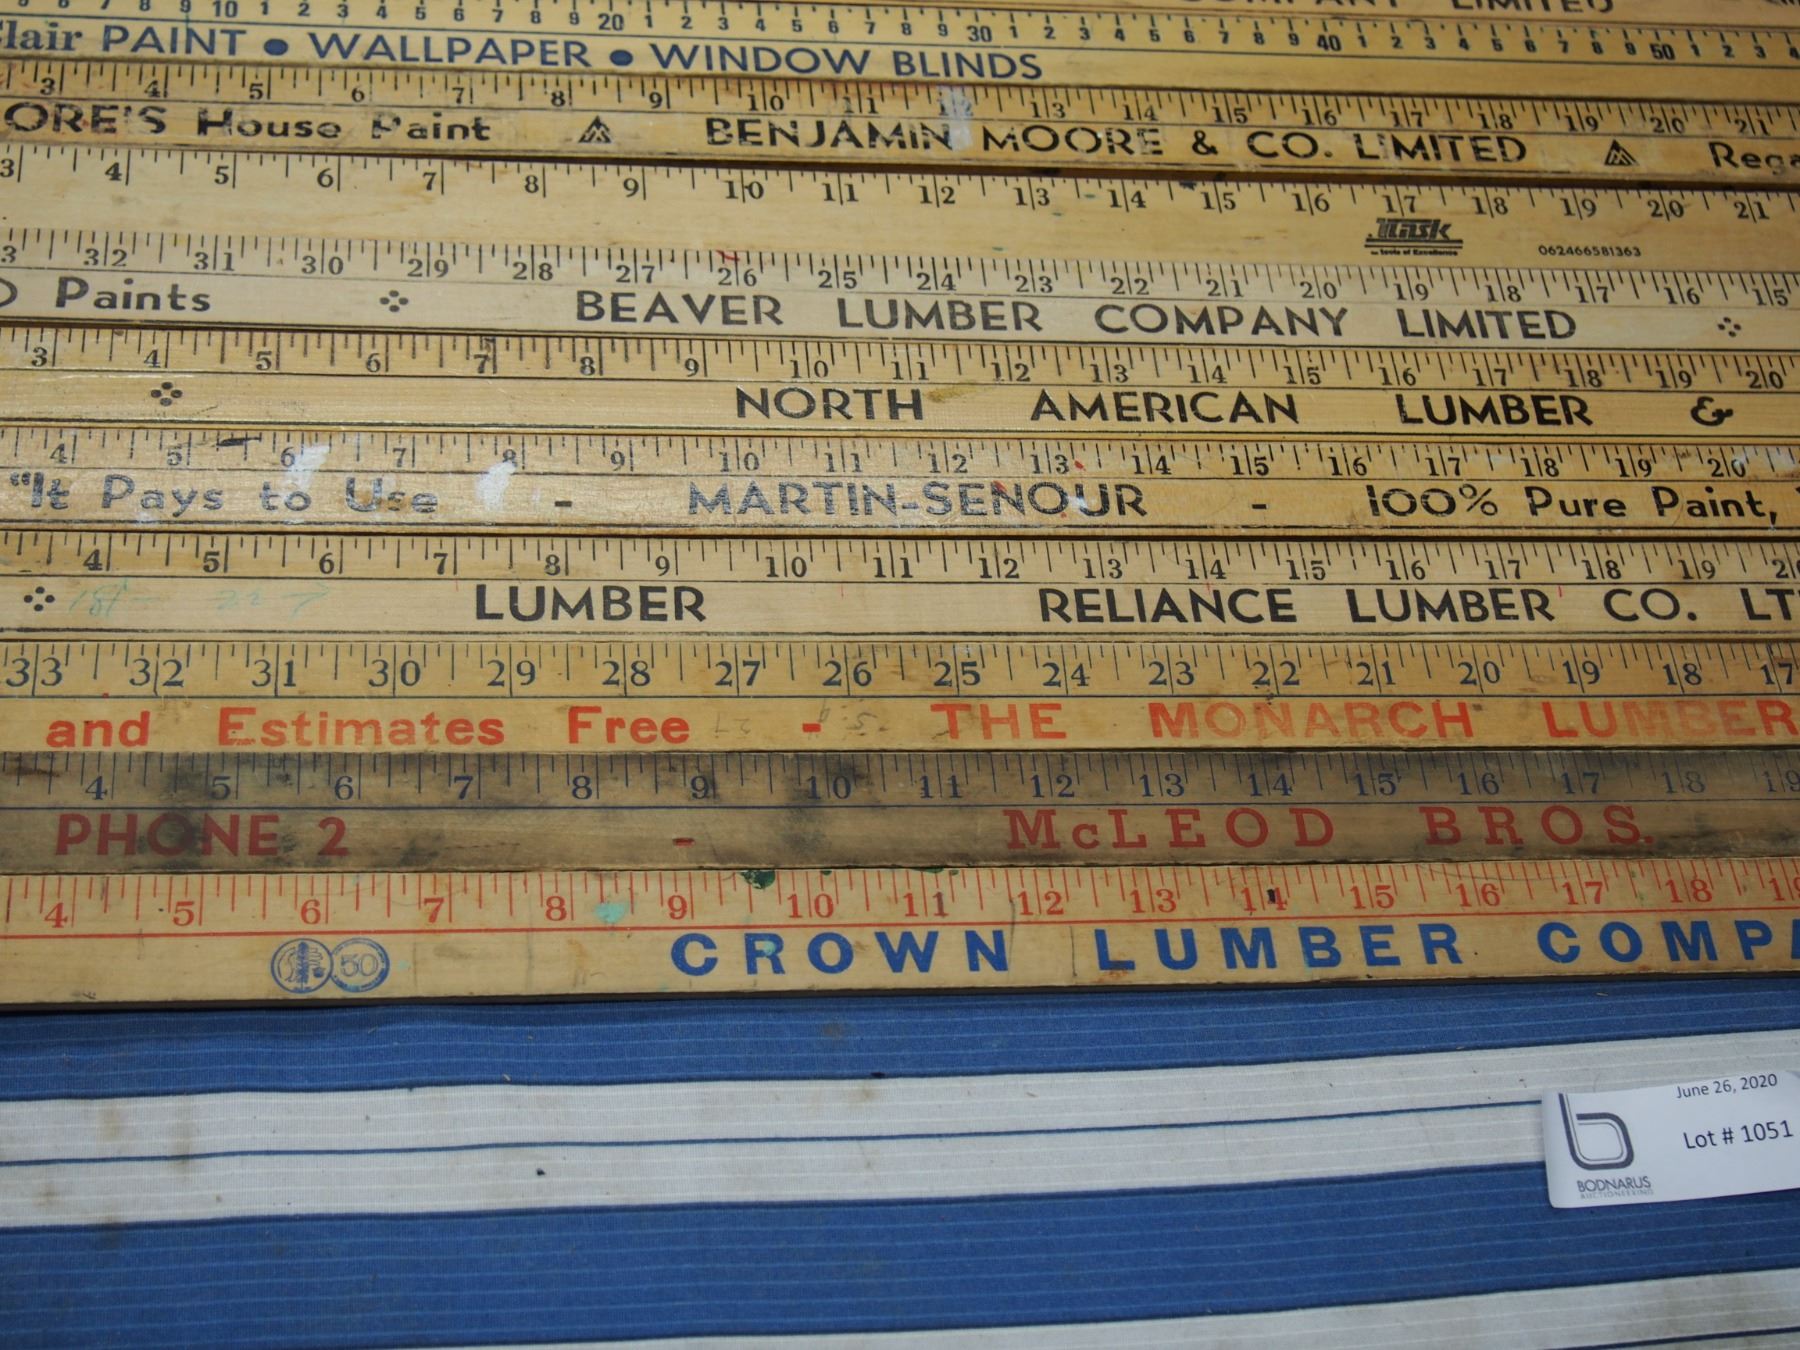 LIMITED
7 8 9 10 1 2 3 4 5 6 7 8 9 20 1 2 3 4 5 6 7 8 9 30 1 2 3 4 5 6 7 8 9 40 1 2 3 4 5 6 7 8 9 50 1 2 3 4
lair PAINT • WALLPAPER • WINDOW BLINDS
3 4 5 6 7 8 9 10 11 12 13 14 15 16 17 18 19 20 21
ORE'S House Paint BENJAMIN MOORE & CO. LIMITED Rega
3 4 5 6 7 8 9 10 11 12 13 14 15 16 17 18 19 20 21
Task
tools of Excellence
062466581363
3 32 31 30 29 28 27 26 25 24 23 22 21 20 19 18 17 16 15
Paints BEAVER LUMBER COMPANY LIMITED
3 4 5 6 7 8 9 10 11 12 13 14 15 16 17 18 19 20
NORTH AMERICAN LUMBER &
4 5 6 7 8 9 10 11 12 13 14 15 16 17 18 19 20
"It Pays to Use - MARTIN-SENOUR - 100% Pure Paint,
4 5 6 7 8 9 10 11 12 13 14 15 16 17 18 19 2
LUMBER RELIANCE LUMBER CO. LT
33 32 31 30 29 28 27 26 25 24 23 22 21 20 19 18 17
and Estimates Free - THE MONARCH LUMBER
4 5 6 7 8 9 10 11 12 13 14 15 16 17 18 19
PHONE 2 - McLEOD BROS.
4 5 6 7 8 9 10 11 12 13 14 15 16 17 18 19
50 CROWN LUMBER COMPA
June 26, 2020
Lot # 1051
BODNARUS
AUCTIONEERING